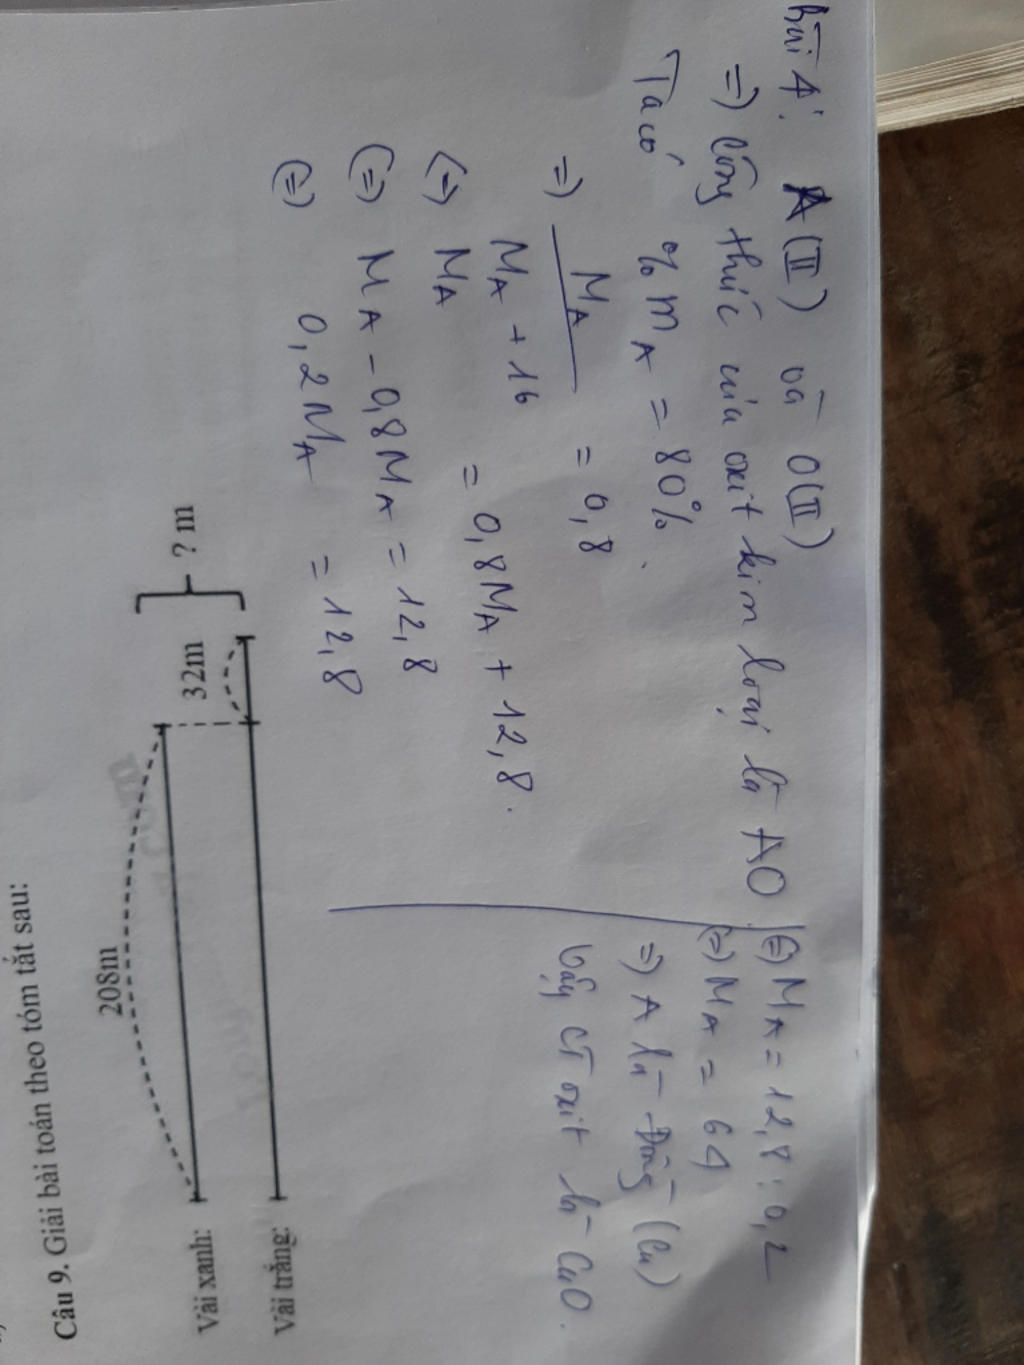 Câu 9. Giải bài toán theo tóm tắt sau:
208m
Vải xanh:
32m
? m
Vải trắng:
Bài 4: A(II) và O(II)
=) Công thức của oxit kim loại là AO
Ta có % m A = 80%.
=) MA / MA + 16 = 0,8
(=) MA = 0,8MA + 12,8.
(=) MA - 0,8MA = 12,8
(=) 0,2MA = 12,8
(=) MA = 12,8 : 0,2
(=) MA = 64
=) A là Đồng (Cu)
Vậy CT oxit là CuO.